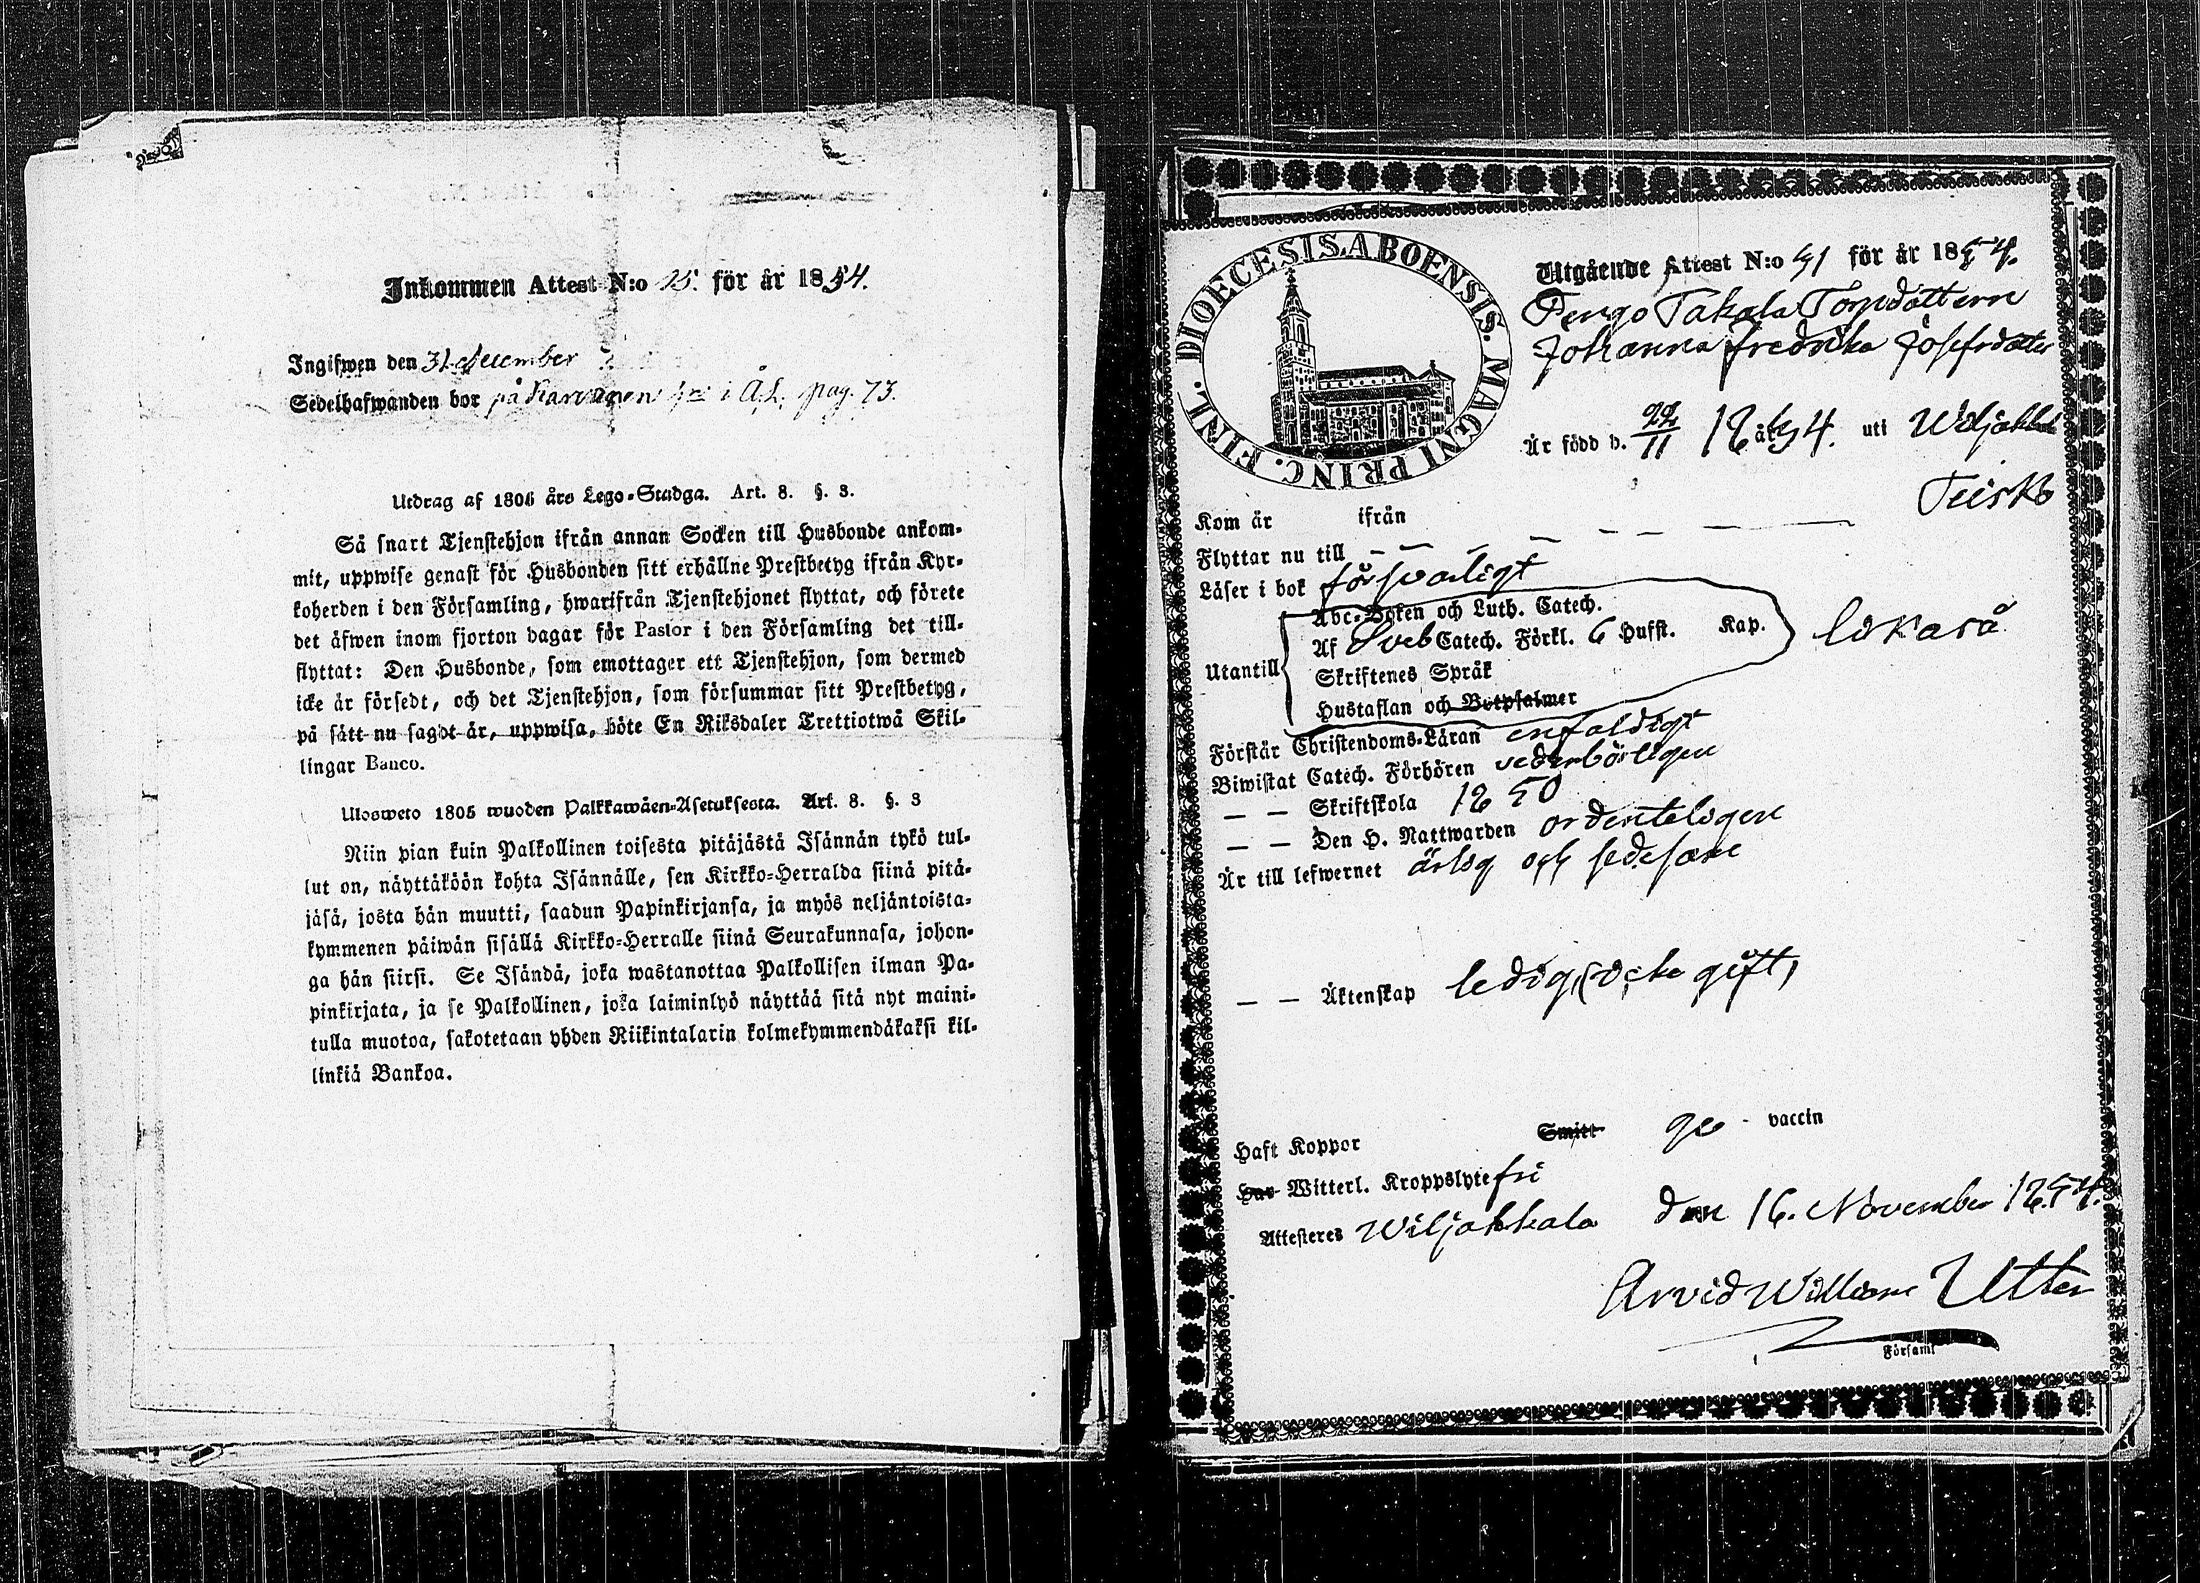 Inkommen Attest N:o 25. för år 1854.
Ingifwen den 31 december
Sedelhafwanden bor på i Å.L. pag. 73.
Utdrag af 1805 års Lego-Stadga. Art. 8. §. 3.
Så snart Tjenstehjon ifrån annan Socken till Husbonde ankom-
mit, uppwise genast för Husbonden sitt erhållne Prestbetyg ifrån Kyr-
koherden i den Församling, hwarifrån Tjenstehjonet flyttat, och förete
det äfwen inom fjorton dagar för Pastor i den Församling det till-
flyttat: Den Husbonde, som emottager ett Tjenstehjon, som dermed
icke är försedt, och det Tjenstehjon, som försummar sitt Prestbetyg,
på sätt nu sagdt är, uppwisa, böte En Riksdaler Trettiotwå Skil-
lingar Banco.
Ulosweto 1805 wuoden Palkkawäen-Asetuksesta. Art. 8. §. 3
Niin pian kuin Palkollinen toisesta pitäjästä Isännän tykö tul-
lut on, näyttäköön kohta Isännälle, sen Kirkko-Herralda siinä pitä-
jäsä, josta hän muutti, saadun Papinkirjansa, ja myös neljäntoista-
kymmenen päiwän sisällä Kirkko-Herralle siinä Seurakunnasa, johon-
ga hän siirsi. Se Isändä, joka wastanottaa Palkollisen ilman Pa-
pinkirjata, ja se Palkollinen, joka laiminlyö näyttää sitä nyt maini-
tulla muotoa, sakotetaan yhden Riikintalarin kolmekymmendäkaksi kil-
linkiä Bankoa.
DIOECESIS. ABOENSIS. MAGNI PRINC. FINL.
Utgående Attest N:o 41 för år 1854.
Pengo Takala Torpdottern
Johanna Fredrika Josefsdotter
Är född d. 22/11 18 år 34. uti Wiljakkala
Teisko
Kom år ifrån
Flyttar nu till
Läser i bok försvarligt
Utantill
Abc-Boken och Luth. Catech.
Af Sveb Catech. Förkl. 6 Hufst. Kap. likaså
Skriftenes Språk
Hustaflan och Botpsalmer
Förstår Christendoms-Läran enfaldigt
Biwistat Catech. Förhören vederbörligen
— — Skriftskola 1850
— — Den H. Nattwarden ordentligen
Är till lefwernet ärlig och sedesam
— — Äktenskap ledig, (icke gift)
Haft Koppor Smitt- vaccin
Har Witterl. Kroppslyte fri
Attesteres Wiljakkala den 16. November 1854.
Arvid William Utter
Församl